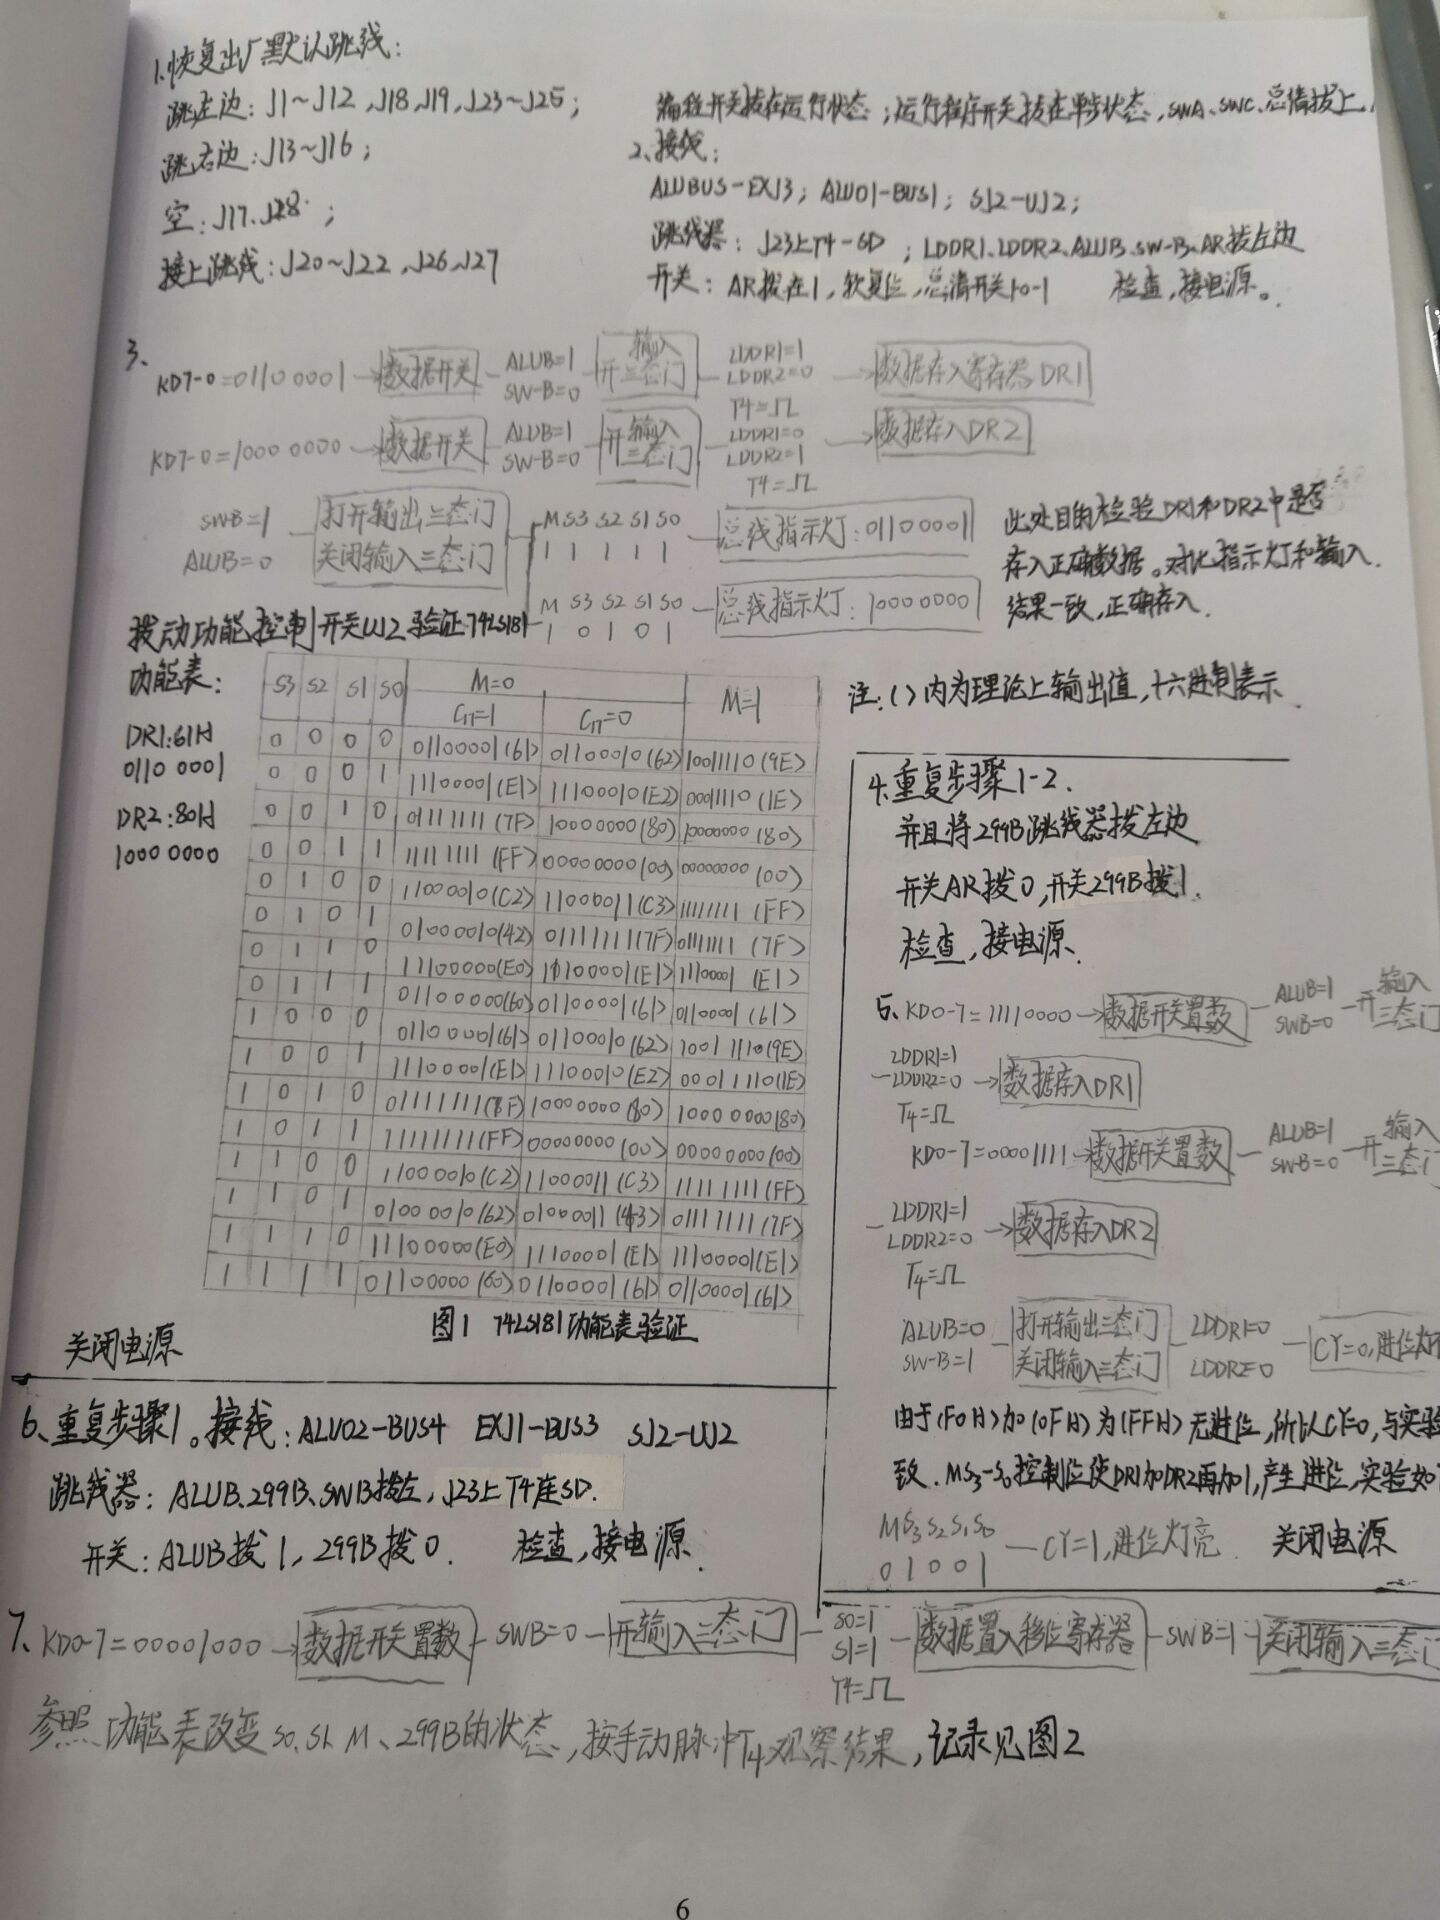 1.恢复出厂默认跳线：
跳左边：J1～J12，J18，J19，J23～J25；
跳右边：J13～J16；
空：J17、J28；
接上跳线：J20～J22，J26、J27
编程开关拔在运行状态；运行程序开关拔在单步状态，SWA、SWC、总清拔上，
2、接线；
ALUBUS－EXJ3；ALUO1－BUS1；SJ2－UJ2；
跳线器：J23上T4－SD；LDDR1、LDDR2、ALUB、SW-B、AR拨左边
开关：AR拨在1，软复位，总清开关1-0-1 检查，接电源。
3、
KD7-0=0110 0001 →数据开关 ALUB=1 SW-B=0 开输入三态门 LDDR1=1 LDDR2=0 T4=⎍ →数据存入寄存器DR1
KD7-0=1000 0000 →数据开关 ALUB=1 SW-B=0 开输入三态门 LDDR1=0 LDDR2=1 T4=⎍ →数据存入DR2
SWB=1 ALUB=0 打开输出三态门 关闭输入三态门
M S3 S2 S1 S0 总线指示灯：01100001
1 1 1 1 1
M S3 S2 S1 S0 总线指示灯：10000000
1 0 1 0 1
此处目的检验DR1和DR2中是否
存入正确数据。对比指示灯和输入
结果一致，正确存入．
拨动功能控制开关UJ2验证74LS181
功能表：
DR1:61H
0110 0001
DR2:80H
1000 0000
S3 S2 S1 S0 M=0 M=1
Cn=1 Cn=0
0 0 0 0 01100001(61) 01100010(62) 10011110(9E)
0 0 0 1 11100001(E1) 11100010(E2) 00011110(1E)
0 0 1 0 01111111(7F) 10000000(80) 10000000(80)
0 0 1 1 11111111(FF) 00000000(00) 00000000(00)
0 1 0 0 11000010(C2) 11000011(C3) 11111111(FF)
0 1 0 1 01000010(42) 01111111(7F) 01111111(7F)
0 1 1 0 11100000(E0) 11100001(E1) 11100001(E1)
0 1 1 1 01100000(60) 01100001(61) 01100001(61)
1 0 0 0 01100001(61) 01100010(62) 10011110(9E)
1 0 0 1 11100001(E1) 11100010(E2) 00011110(1E)
1 0 1 0 01111111(7F) 10000000(80) 10000000(80)
1 0 1 1 11111111(FF) 00000000(00) 00000000(00)
1 1 0 0 11000010(C2) 11000011(C3) 11111111(FF)
1 1 0 1 01000010(62) 01000011(43) 01111111(7F)
1 1 1 0 11100000(E0) 11100001(E1) 11100001(E1)
1 1 1 1 01100000(60) 01100001(61) 01100001(61)
图1 74LS181功能表验证
关闭电源
注：( )内为理论上输出值，十六进制表示．
4.重复步骤1-2．
并且将299B跳线器拨左边
开关AR拨0，开关299B拨1．
检查，接电源．
5、KD0-7=11110000→数据开关置数 ALUB=1 SWB=0 开输入三态门
LDDR1=1 LDDR2=0 T4=⎍ →数据存入DR1
KD0-7=00001111→数据开关置数 ALUB=1 SW-B=0 开输入三态门
LDDR1=1 LDDR2=0 T4=⎍ →数据存入DR2
ALUB=0 SW-B=1 打开输出三态门 关闭输入三态门 LDDR1=0 LDDR2=0 CY=0，进位灯
由于(F0H)加(0FH)为(FFH)无进位，所以CY=0，与实验
致．MS3-S0控制位使DR1加DR2再加1，产生进位，实验如
M S3 S2 S1 S0
0 1 0 0 1 —CY=1，进位灯亮． 关闭电源
6、重复步骤1。接线：ALUO2－BUS4 EXJ1－BUS3 SJ2－UJ2
跳线器：ALUB、299B、SWB拨左，J23上T4连SD．
开关：ALUB拨1，299B拨0． 检查，接电源．
7、KD0-7=00001000→数据开关置数 SWB=0 开输入三态门 S0=1 S1=1 T4=⎍ 数据置入移位寄存器 SWB=1 关闭输入三态门
参照功能表改变S0、S1、M、299B的状态，按手动脉冲T4观察结果，记录见图2
6